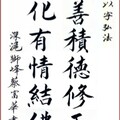 以字弘法
善積德修
化有情結
深滬獅峰蔡富華書